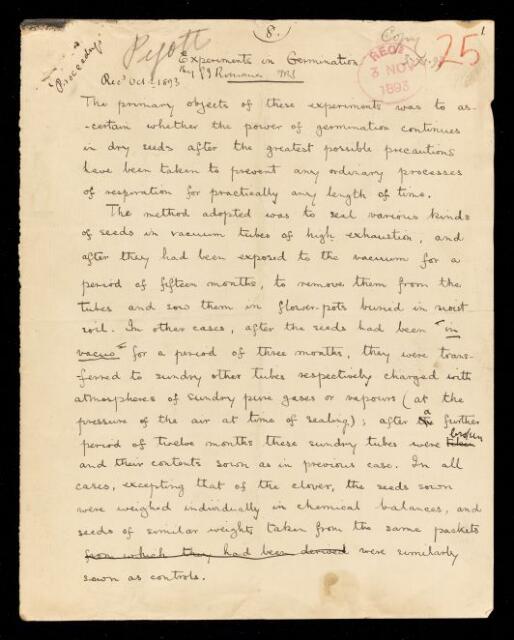 8.
Copy
1
"Proceedings"
Pyott
25
Experiments in Germination
By G J Romanes
Rec^d Oct 1893
REC^D
3 NOV
1893
The primary objects of these experiments was to as-
-certain whether the power of germination continues
in dry seeds after the greatest possible precautions
have been taken to prevent any ordinary processes
of respiration for practically any length of time.
The method adopted was to seal various kinds
of seeds in vacuum tubes of high exhaustion, and
after they had been exposed to the vacuum for a
period of fifteen months, to remove them from the
tubes and sow them in flower-pots buried in moist
soil. In other cases, after the seeds had been "in
vacuo" for a period of three months, they were trans-
-ferred to sundry other tubes respectively charged with
atmospheres of sundry pure gases or vapours (at the
pressure of the air at time of sealing); after the a further
period of twelve months these sundry tubes were taken broken
and their contents sown as in previous case. In all
cases, excepting that of the clover, the seeds sown
were weighed individually in chemical balances, and
seeds of similar weights taken from the same packets
from which they had been derived were similarly
sown as controls.